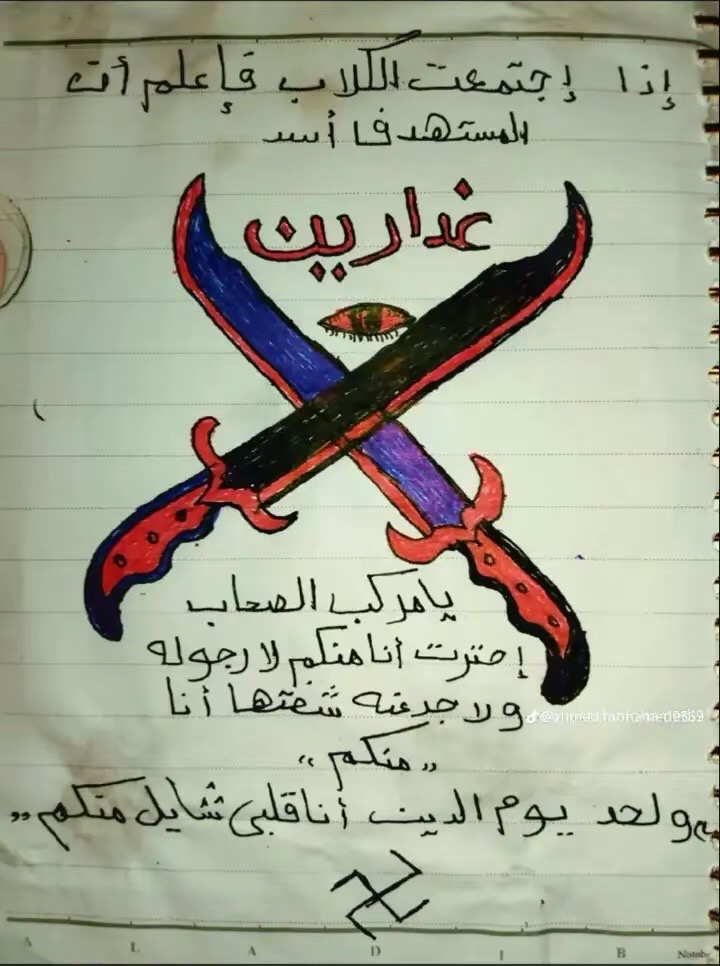 إذا إجتمعت الكلاب فإعلم أن
المستهدف أسد
غدارين
يا مركب الصعاب
إحترت أنا منكم لا رجوله
ولا جدعنه شفتها أنا
„منكم"
ولحد يوم الدين أنا قلبى شايل منكم"
A L A D I B Noteb